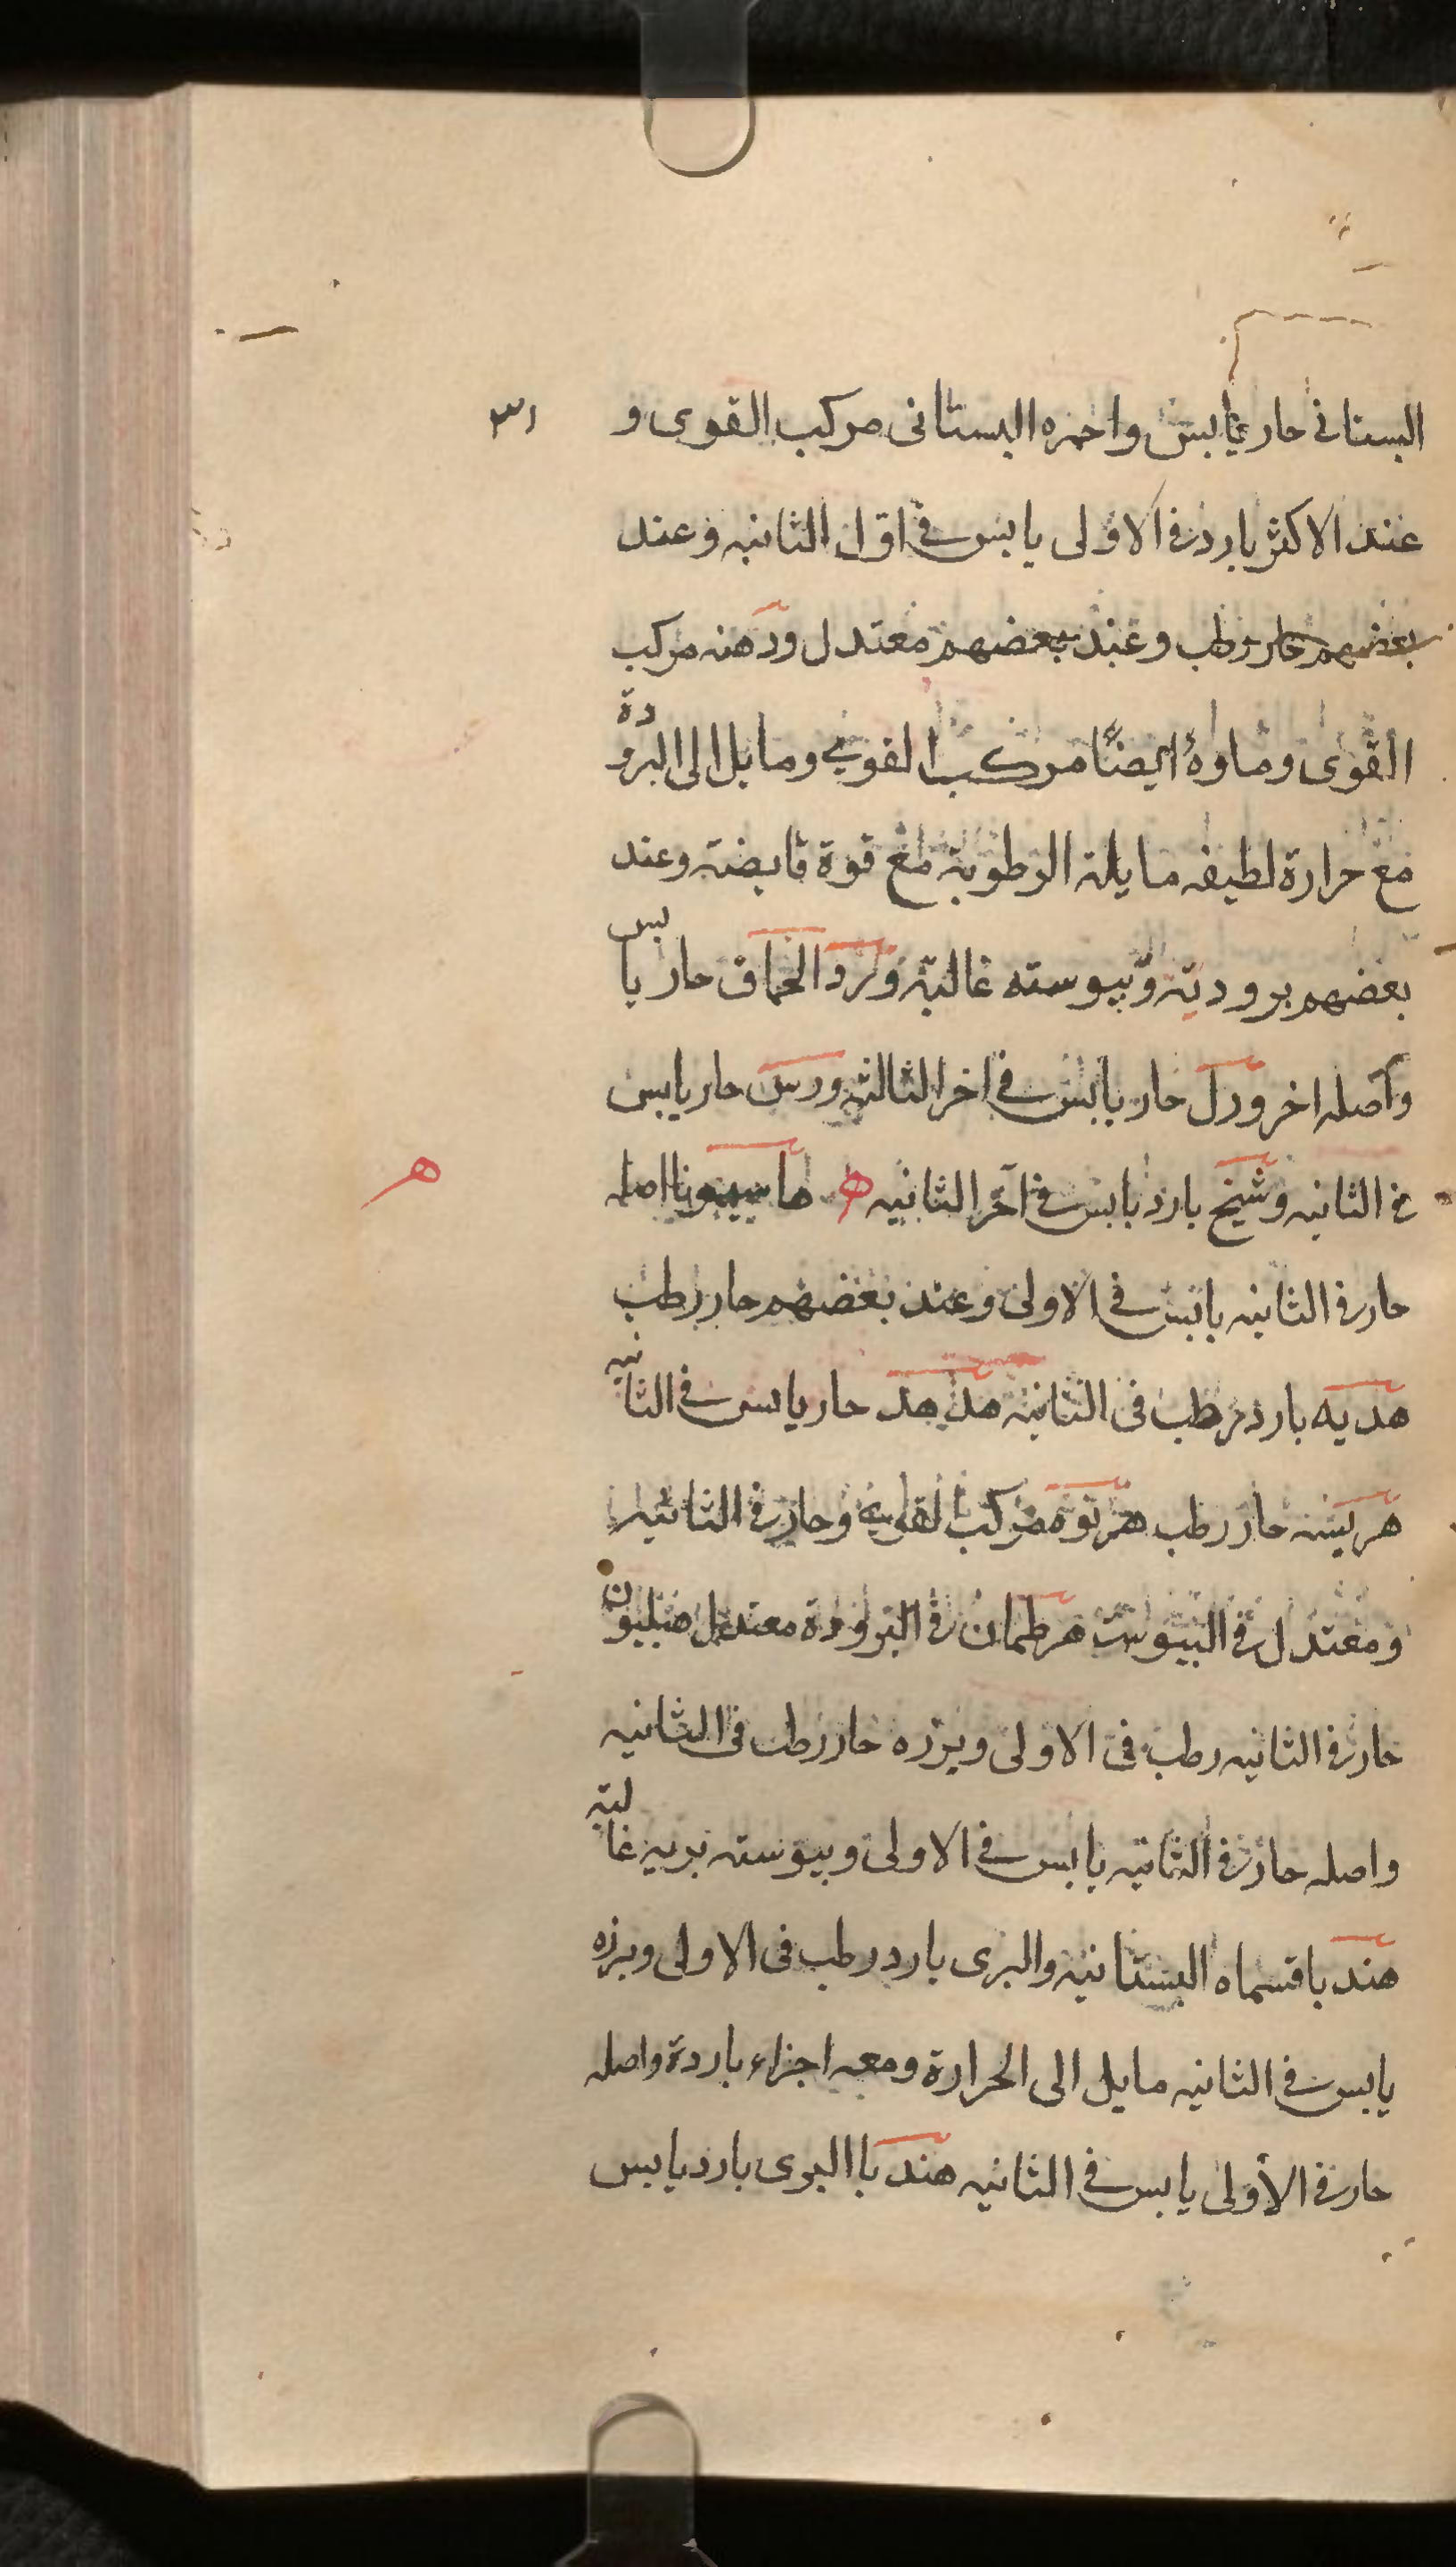 ٣١
البستانى حار يابس واحمره البستانى مركب القوى و
عند الاكثر بارد فى الاولى يابس فى اول الثانيه وعند
بعضهم حار رطب وعند بعضهم معتدل ودهنه مركب
القوى وماوه ايضًا مركب القوى ومايل الى البرودة
مع حرارة لطيفه مايلة الرطوبة مع قوة قابضة وعند
بعضهم برودية ويبوسته غالبة وورد الحماق حار يابس
واصله اخر ورل حار يابس فى اخر الثالثه ورس حار يابس
فى الثانيه وشيخ بارد يابس فى آخر الثانيه ه اصله
ه
حار فى الثانيه يابس فى الاولى وعند بعضهم حار رطب
هديه بارد رطب فى الثانية هدهد حار يابس فى الثانيه
هريسه حار رطب هرنوه مركب القوى وحار فى الثانيه
ومعتدل فى اليبوست هرطمان فى البرودة معتدل هيليون
حار فى الثانيه رطب فى الاولى وبزره حار رطب فى الثانيه
واصله حار فى الثانيه يابس فى الاولى ويبوسته بريه غالبة
هندبا قسماه البستانيه والبرى بارد رطب فى الاولى وبزره
يابس فى الثانيه مايل الى الحرارة ومعه اجزاء باردة واصله
حار فى الأولى يابس فى الثانيه هندبا البرى بارد يابس